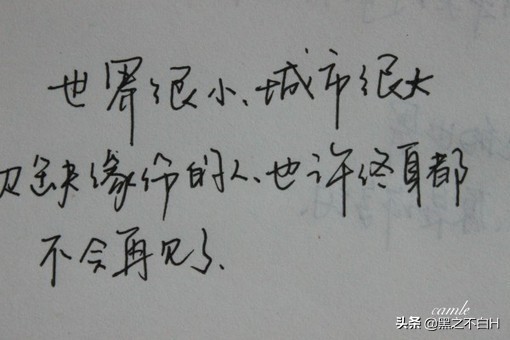 世界很小、城市很大
缺缘份的人、也许终身都
不会再见了.
camle
头条 @黑之不白H